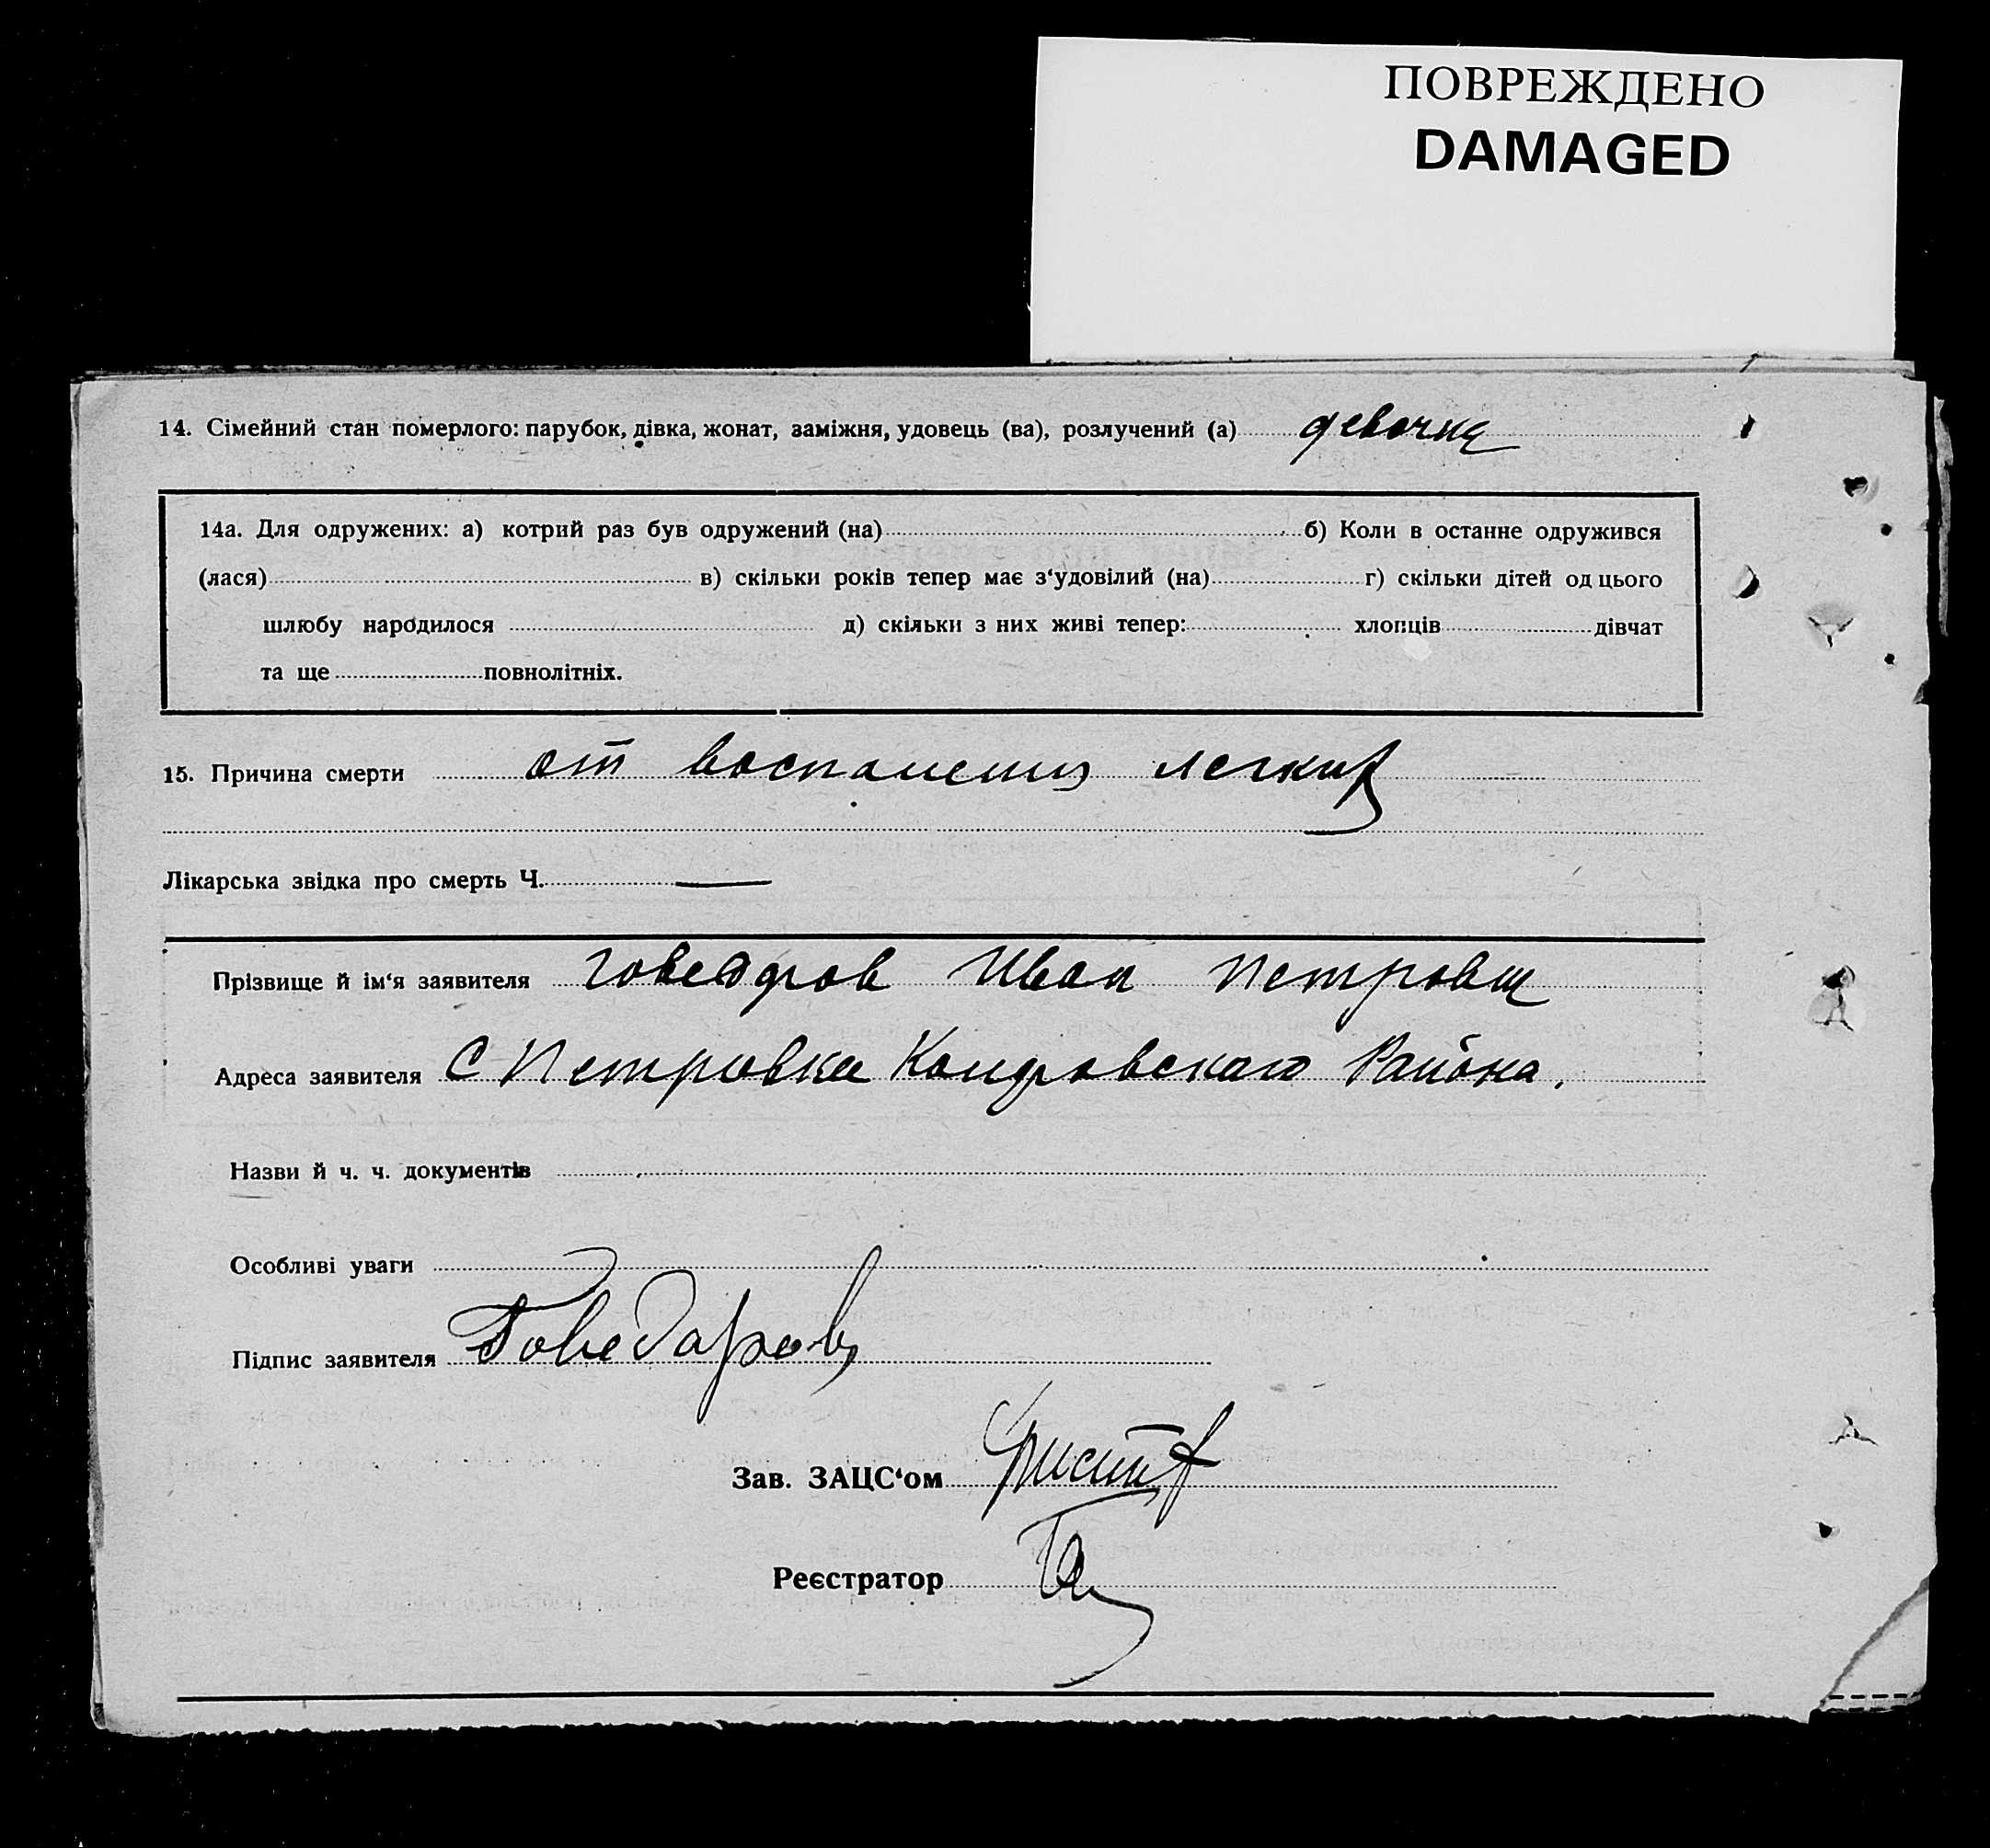 ПОВРЕЖДЕНО
DAMAGED
14. Сімейний стан померлого: парубок, дівка, жонат, заміжня, удовець (ва), розлучений (а) девочка
14а. Для одружених: а) котрий раз був одружений (на) б) Коли в останнє одружився
(лася) в) скільки років тепер має з‘удовілий (на) г) скільки дітей од цього
шлюбу народилося д) скільки з них живі тепер: хлопців дівчат
та ще повнолітніх.
15. Причина смерти от воспаления легких
Лікарська звідка про смерть Ч. —
Прізвище й ім‘я заявителя Иван Петрович
Адреса заявителя С Петровка Района.
Назви й ч. ч. документів
Особливі уваги
Підпис заявителя Говедаров
Зав. ЗАЦС‘ом
Реєстратор